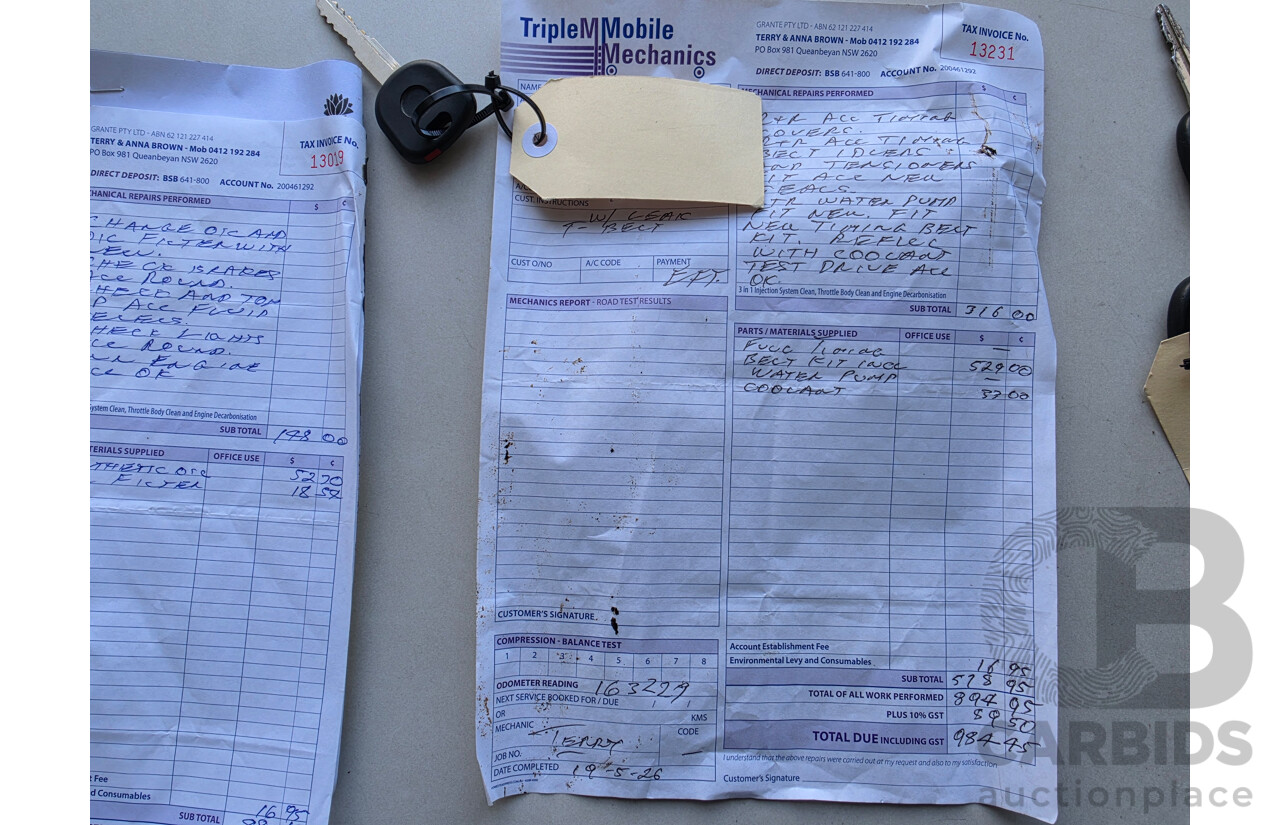 GRANTE PTY LTD - ABN 62 121 227 414
TERRY & ANNA BROWN - Mob 0412 192 284
PO Box 981 Queanbeyan NSW 2620
TAX INVOICE No.
13019
DIRECT DEPOSIT: BSB 641-800 ACCOUNT No. 200461292
HANICAL REPAIRS PERFORMED $ ¢
CHANGE OIL AND
FILTER WITH
CHECK BRAKES
ROUND.
CHECK AND TOP
UP ALL FLUID
CHECK LIGHTS
ROUND.
ENGINE
OK
System Clean, Throttle Body Clean and Engine Decarbonisation
SUB TOTAL 198 00
TERIALS SUPPLIED OFFICE USE $ ¢
THETIC OIL 52 70
FILTER 18
t Fee
d Consumables 16 95
SUB TOTAL
TripleM Mobile
Mechanics
GRANTE PTY LTD - ABN 62 121 227 414
TERRY & ANNA BROWN - Mob 0412 192 284
PO Box 981 Queanbeyan NSW 2620
TAX INVOICE No.
13231
DIRECT DEPOSIT: BSB 641-800 ACCOUNT No. 200461292
NAME
CUST. INSTRUCTIONS
W/ LEAK
T- BELT
CUST O/NO A/C CODE PAYMENT
EFT.
MECHANICS REPORT - ROAD TEST RESULTS
CUSTOMER'S SIGNATURE
COMPRESSION - BALANCE TEST
1 2 3 4 5 6 7 8
ODOMETER READING 163229
NEXT SERVICE BOOKED FOR / DUE / /
OR KMS
MECHANIC TERRY CODE
JOB NO.
DATE COMPLETED 19-5-26
MECHANICAL REPAIRS PERFORMED $ ¢
R+R ALL TIMING
COVERS.
R+R ALL TIMING
BELT
AND TENSIONERS
FIT ALL NEW
SEALS.
WATER PUMP
FIT NEW. FIT
NEW TIMING BELT
KIT. REFILL
WITH COOLANT
TEST DRIVE ALL
OK.
3 in 1 Injection System Clean, Throttle Body Clean and Engine Decarbonisation
SUB TOTAL 316 00
PARTS / MATERIALS SUPPLIED OFFICE USE $ ¢
FULL TIMING —
BELT KIT INCL 529 00
WATER PUMP —
COOLANT 33 00
Account Establishment Fee
Environmental Levy and Consumables 16 95
SUB TOTAL 578 95
TOTAL OF ALL WORK PERFORMED 894 95
PLUS 10% GST 89 50
TOTAL DUE INCLUDING GST 984 45
I understand that the above repairs were carried out at my request and also to my satisfaction
Customer's Signature
CARBIDS
auctionplace